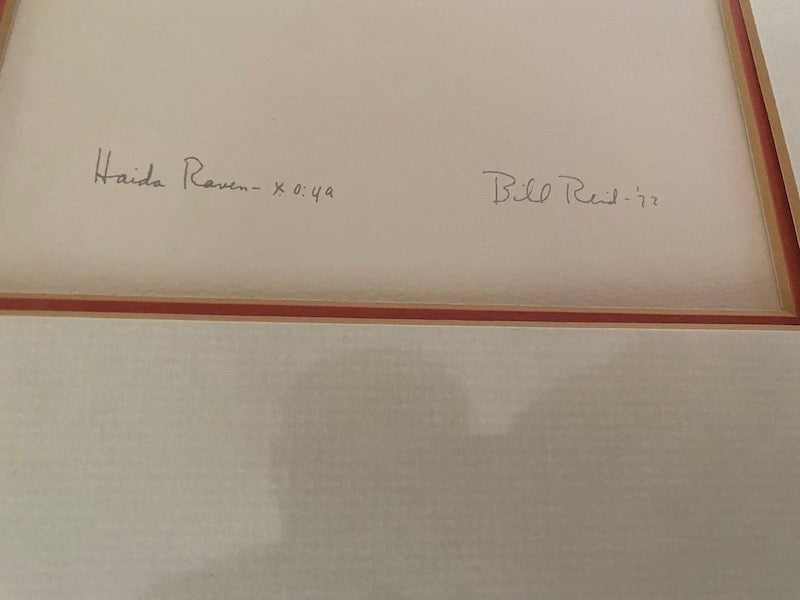 Haida Raven - X̣.o:ya Bill Reid - '72